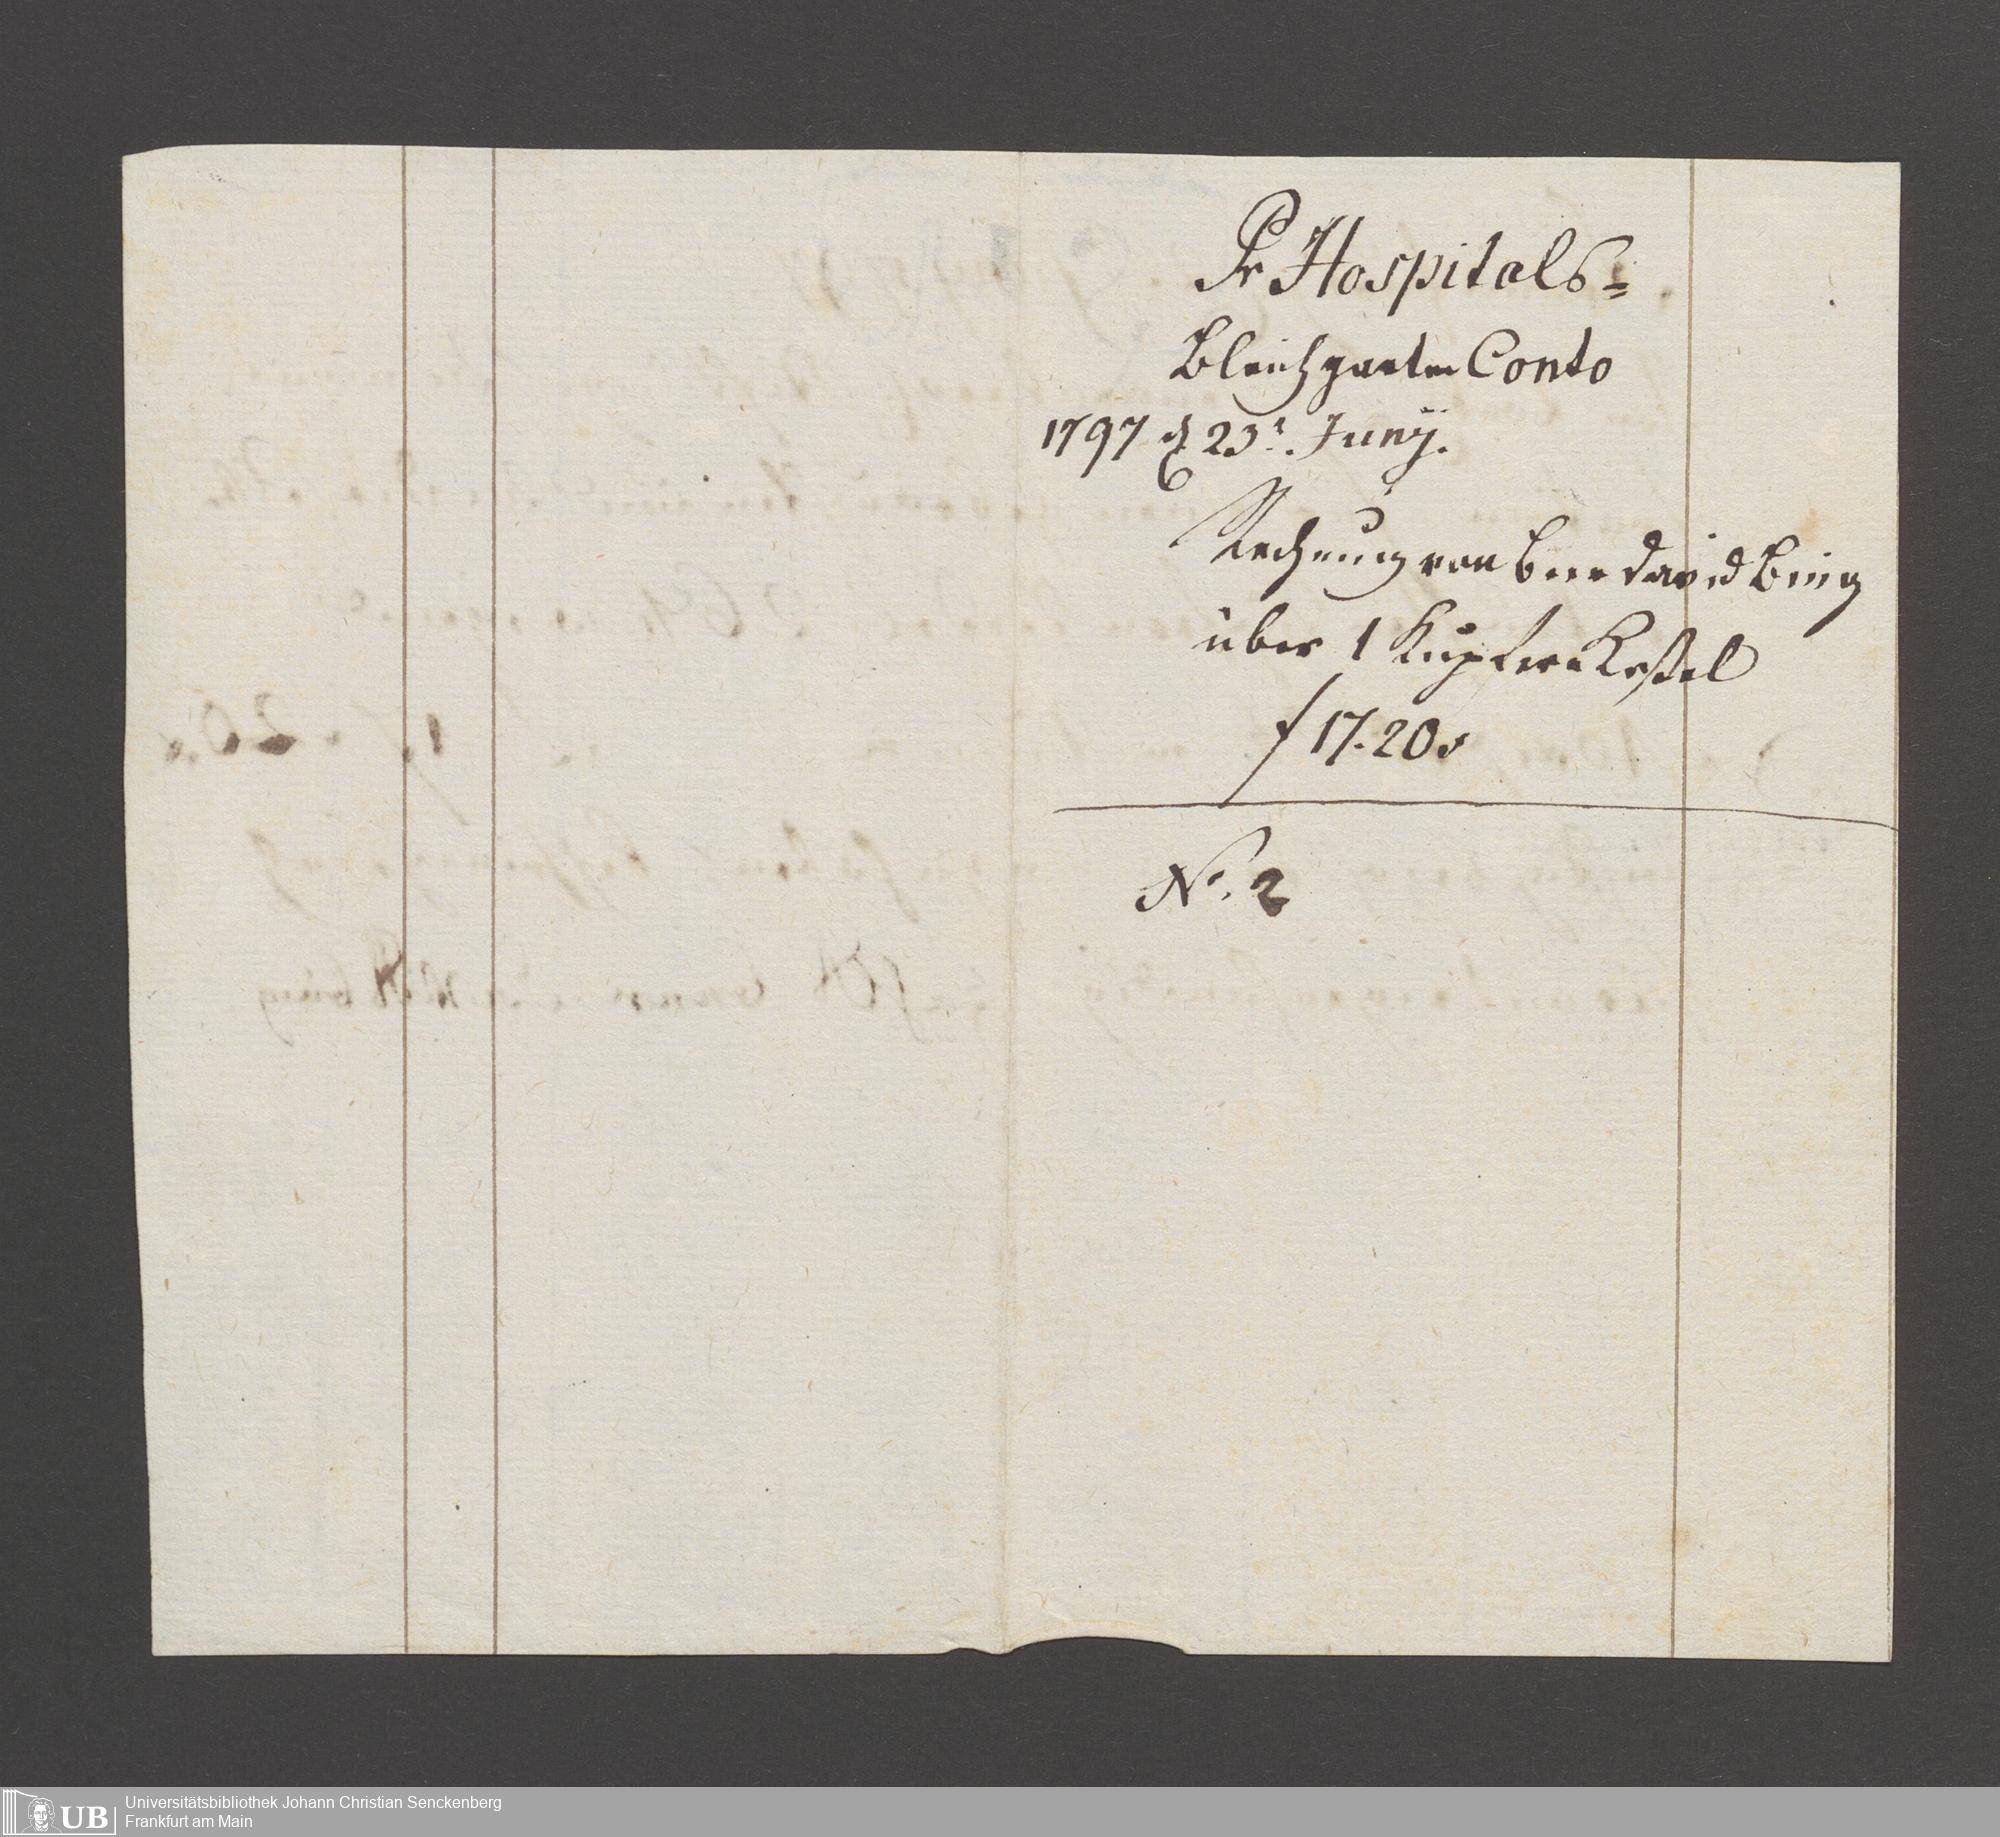 Pr Hospitals=
Bleichgarten Conto
1797 d 23t. Juny.
Rechnung von Beer david Bing
über 1 Kupfern Keßel
f 17.20.
No. 2
UB
Universitätsbibliothek Johann Christian Senckenberg
Frankfurt am Main